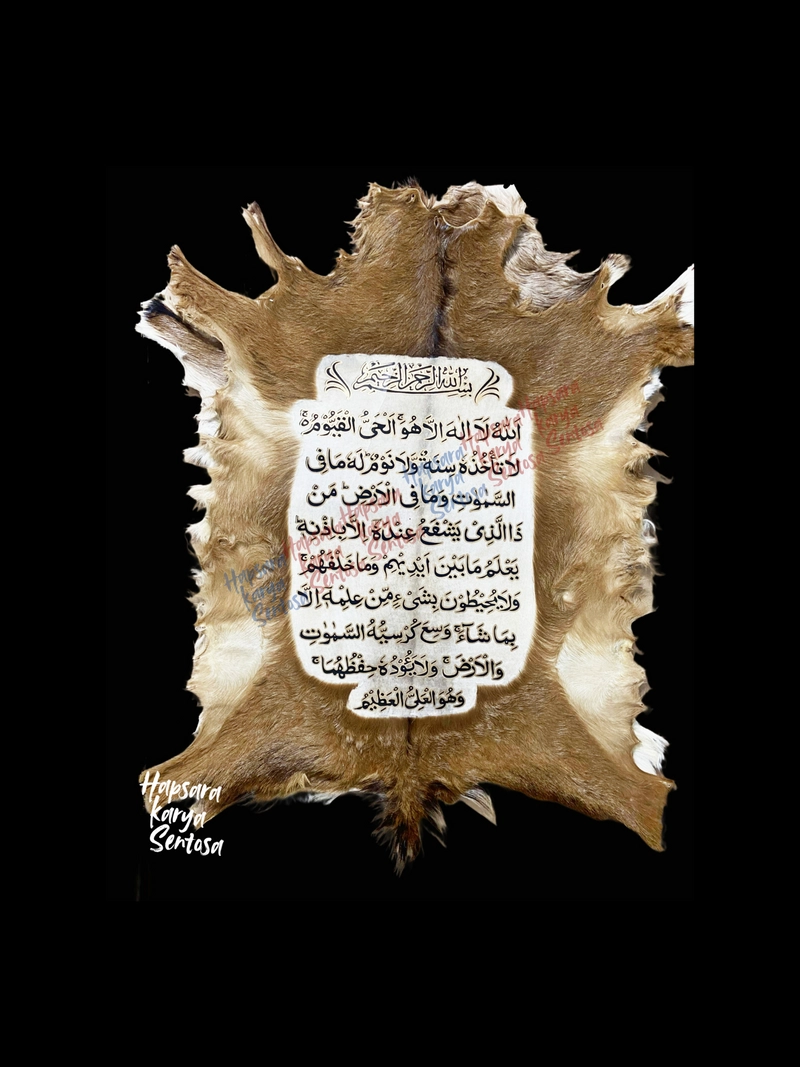 بسم الله الرحمن الرحيم
اَللّٰهُ لَآ اِلٰهَ اِلَّا هُوَۚ اَلْحَيُّ الْقَيُّوْمُ ەۚ
لَا تَأْخُذُهٗ سِنَةٌ وَّلَا نَوْمٌۗ لَهٗ مَا فِى
السَّمٰوٰتِ وَمَا فِى الْاَرْضِۗ مَنْ
ذَا الَّذِيْ يَشْفَعُ عِنْدَهٗٓ اِلَّا بِاِذْنِهٖۗ
يَعْلَمُ مَا بَيْنَ اَيْدِيْهِمْ وَمَا خَلْفَهُمْۚ
وَلَا يُحِيْطُوْنَ بِشَيْءٍ مِّنْ عِلْمِهٖٓ اِلَّا
بِمَا شَاۤءَۚ وَسِعَ كُرْسِيُّهُ السَّمٰوٰتِ
وَالْاَرْضَۚ وَلَا يَـُٔوْدُهٗ حِفْظُهُمَاۚ
وَهُوَ الْعَلِيُّ الْعَظِيْمُ
Hapsara
Karya
Sentosa
Hapsara
Karya
Sentosa
Hapsara
Karya
Sentosa
Hapsara
Karya
Sentosa
Hapsara
Karya
Sentosa
Hapsara
Karya
Sentosa
Hapsara
Karya
Sentosa